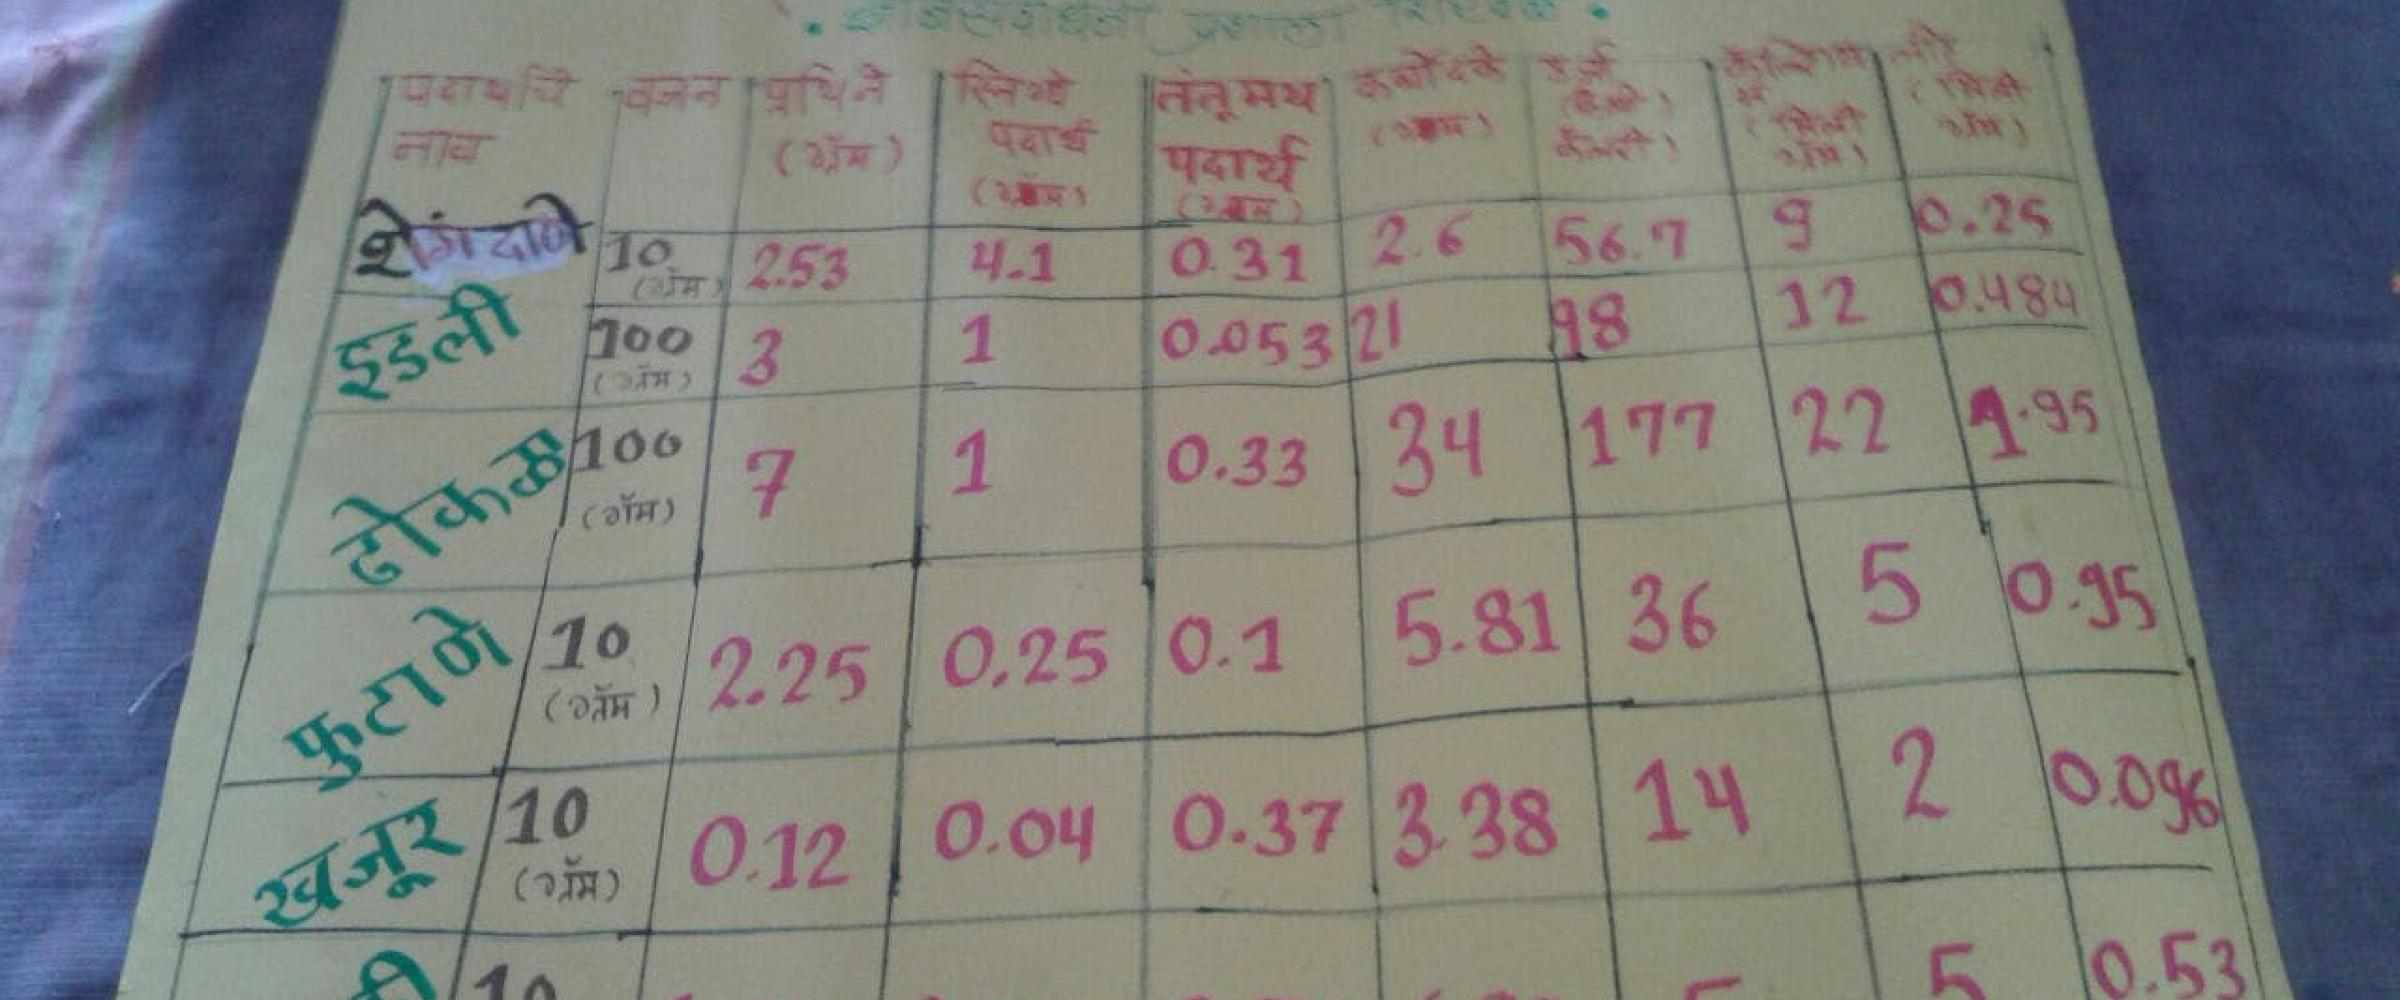 पदार्थाचे नाव वजन प्रथिने (ग्रॅम) स्निग्ध पदार्थ (ग्रॅम) तंतूमय पदार्थ (ग्रॅम) कर्बोदके (ग्रॅम)
शेंगदाणे 10 (ग्रॅम) 2.53 4.1 0.31 2.6 56.7 9 0.25
इडली 100 (ग्रॅम) 3 1 0.053 21 98 12 0.484
ढोकळा 100 (ग्रॅम) 7 1 0.33 34 177 22 1.95
फुटाणे 10 (ग्रॅम) 2.25 0.25 0.1 5.81 36 5 0.95
खजूर 10 (ग्रॅम) 0.12 0.04 0.37 3.38 14 2 0.096
10 5 0.53